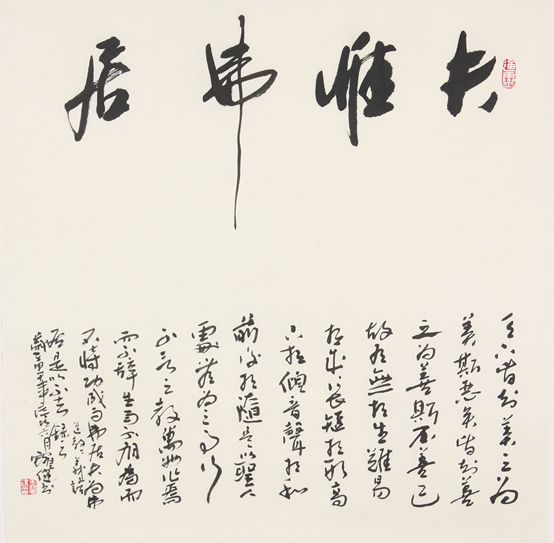 夫惟弗居
天下皆知美之为
美斯恶矣皆知善
之为善斯不善已
故有無相生難易
相成長短相形高
下相傾音聲相和
前後相隨是以聖人
處無为之事行
不言之教萬物作焉
而不辭生而不有为而
不恃功成而弗居夫弗
居是以不去 錄
甲午年六月